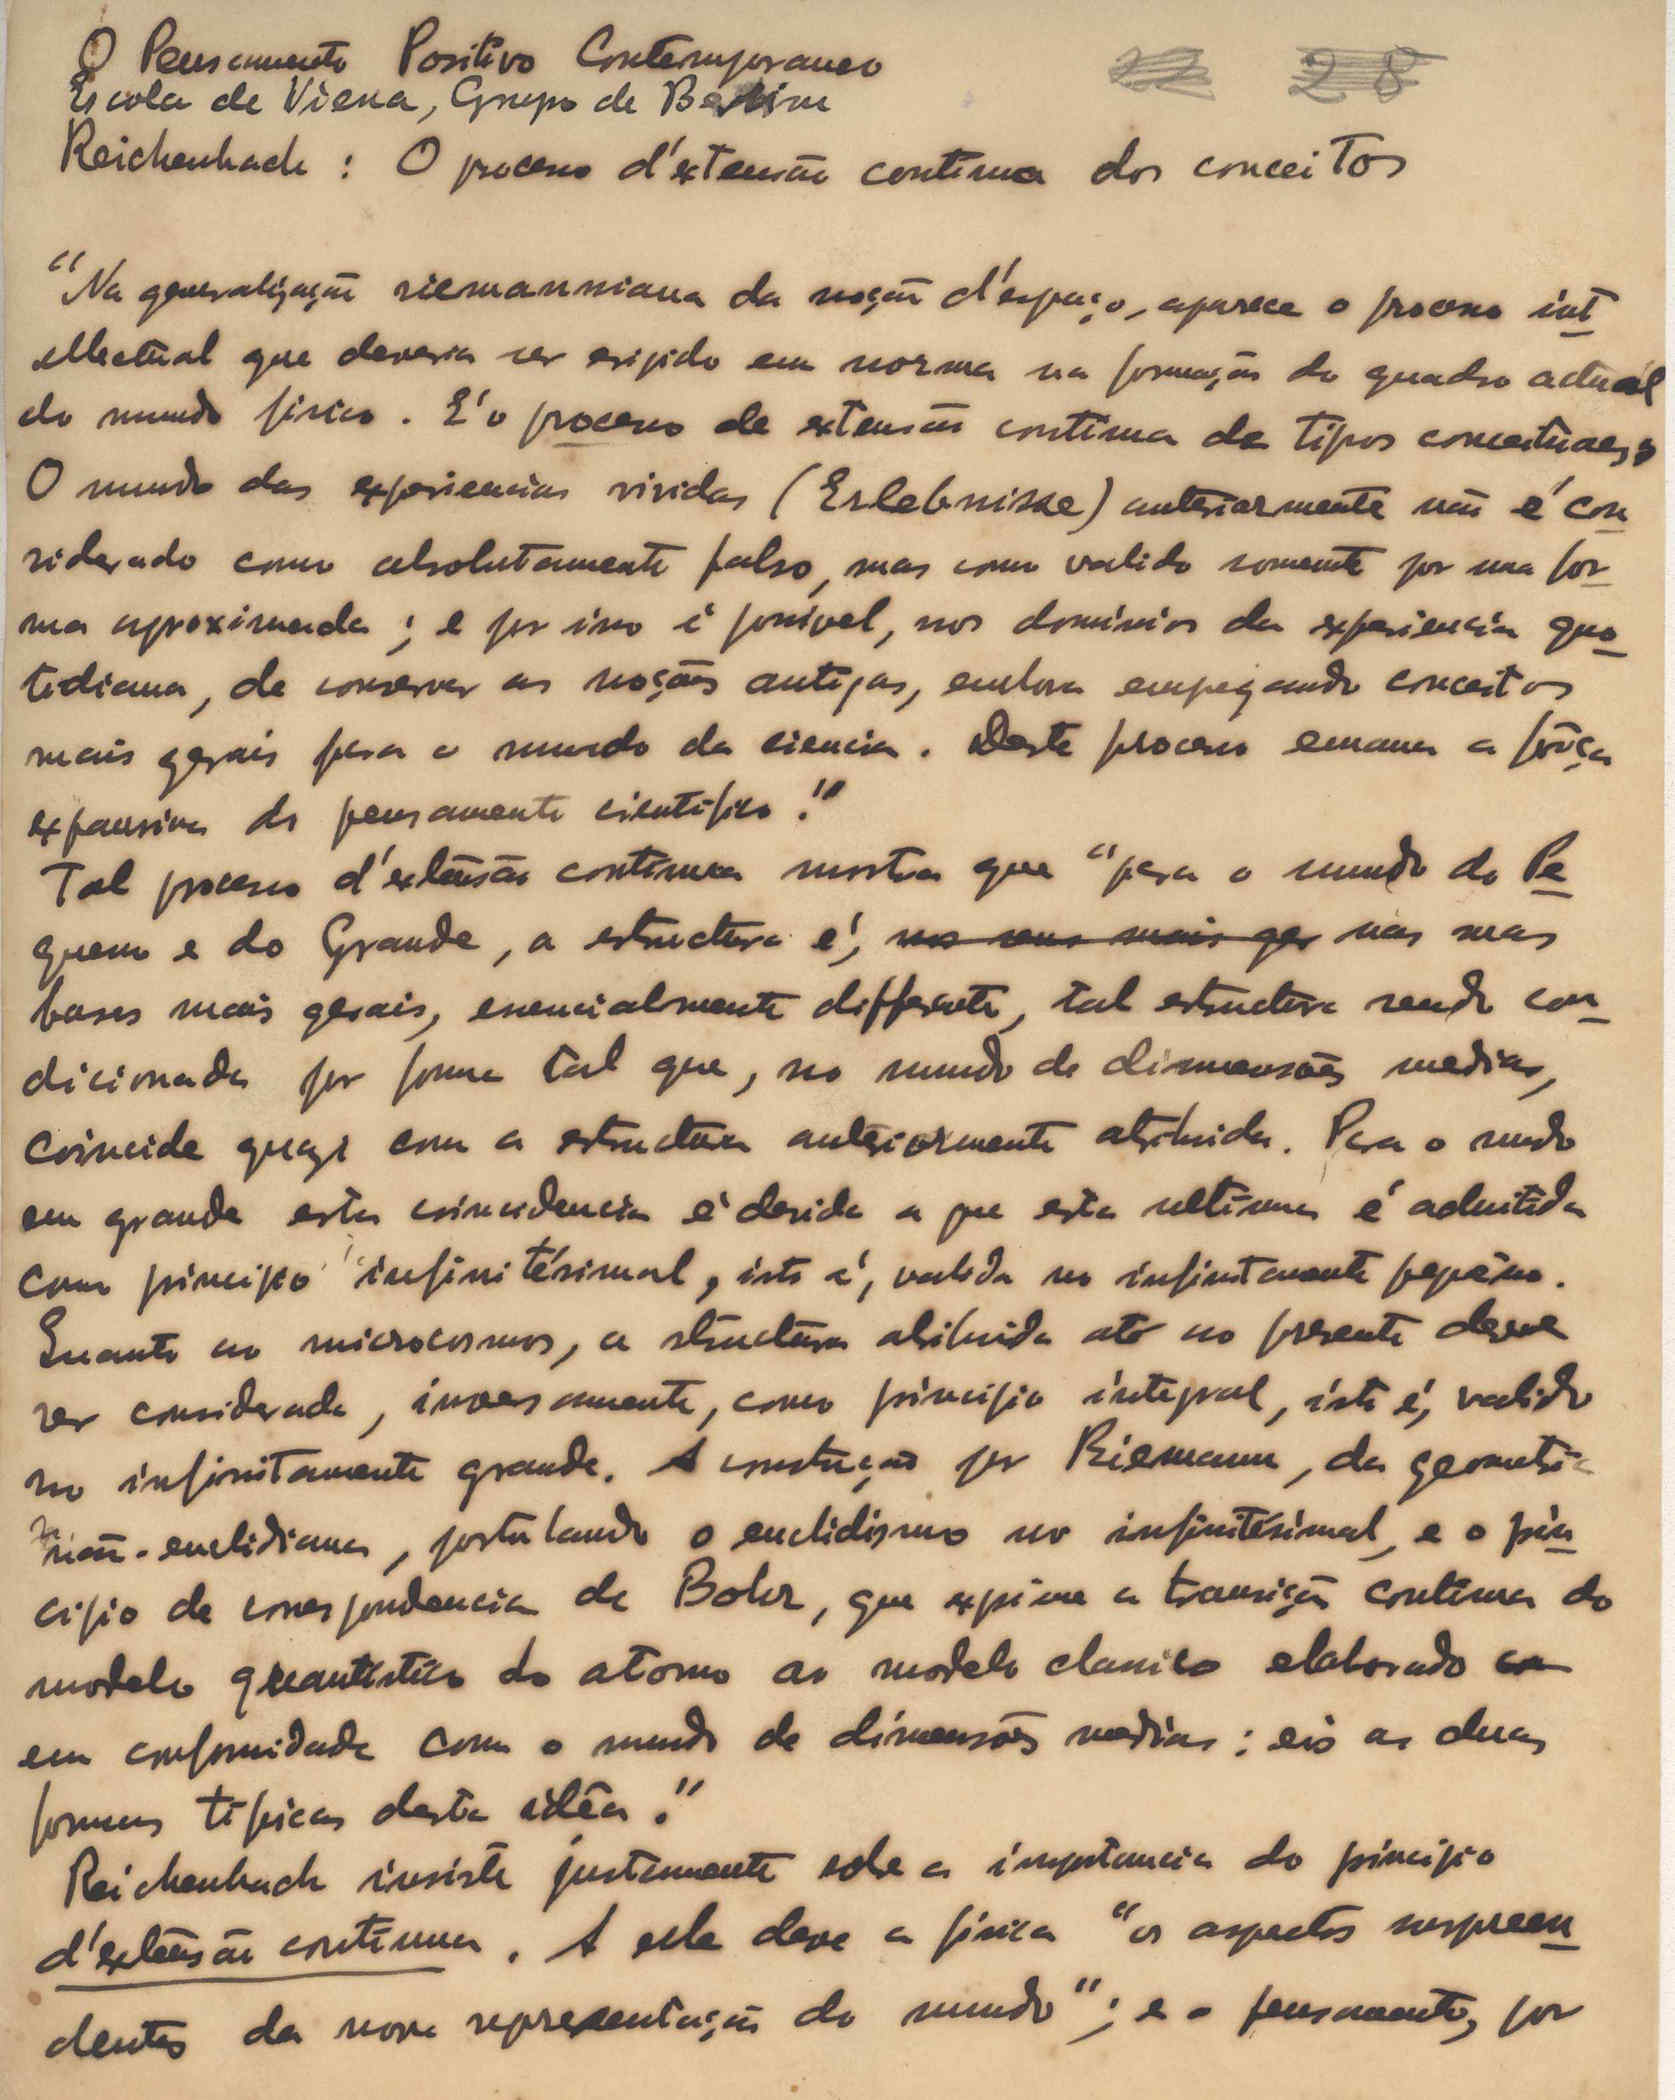 O Pensamento Positivo Contemporaneo
Escola de Viena, Grupo de Berlim
28
Reichenbach : O processo d'extensão contínua dos conceitos
"Na generalização riemanniana da noção d'espaço, aparece o processo int
ellectual que deveria ser erigido em norma na formação do quadro actual
do mundo físico. E' o processo de extensão contínua de tipos conceituaes:
O mundo das experiencias vividas (Erlebnisse) anteriormente não é con
siderado como absolutamente falso, mas como valido somente por uma for
ma aproximada ; e por isso é possivel, nos dominios da experiencia quo
tidiana, de conservar as noções antigas, embora empregando conceitos
mais gerais para o mundo da ciencia. Deste processo emana a fôrça
expansiva do pensamento científico."
Tal processo d'extensão contínua mostra que "para o mundo do Pe
queno e do Grande, a estructura é, nos seus mais ger nas suas
bases mais gerais, essencialmente differente, tal estructura sendo con
dicionada por forma tal que, no mundo de dimensões medias,
coincide quazi com a estructura anteriormente atribuida. Para o mundo
em grande esta coincidencia é devida a que esta ultima é admitida
como principio infinitésimal, isto é, valida no infinitamente pequeno.
Quanto ao microcosmos, a structura atribuida até ao presente deve
ser considerada, inversamente, como principio integral, isto é, valido
no infinitamente grande. A construção por Riemann, da geometria
não-euclidiana, postulando o euclidismo no infinitésimal, e o prin
cipio de correspondencia de Bohr, que exprime a transição contínua do
modelo quantístico do atomo ao modelo classico elaborado
em conformidade com o mundo de dimensões medias : eis as duas
formas típicas desta idêa."
Reichenbach insiste justamente sobre a importancia do principio
d'extensão contínua. A elle deve a fisica "os aspectos surpreen
dentes da nova representação do mundo" ; e o pensamento, por